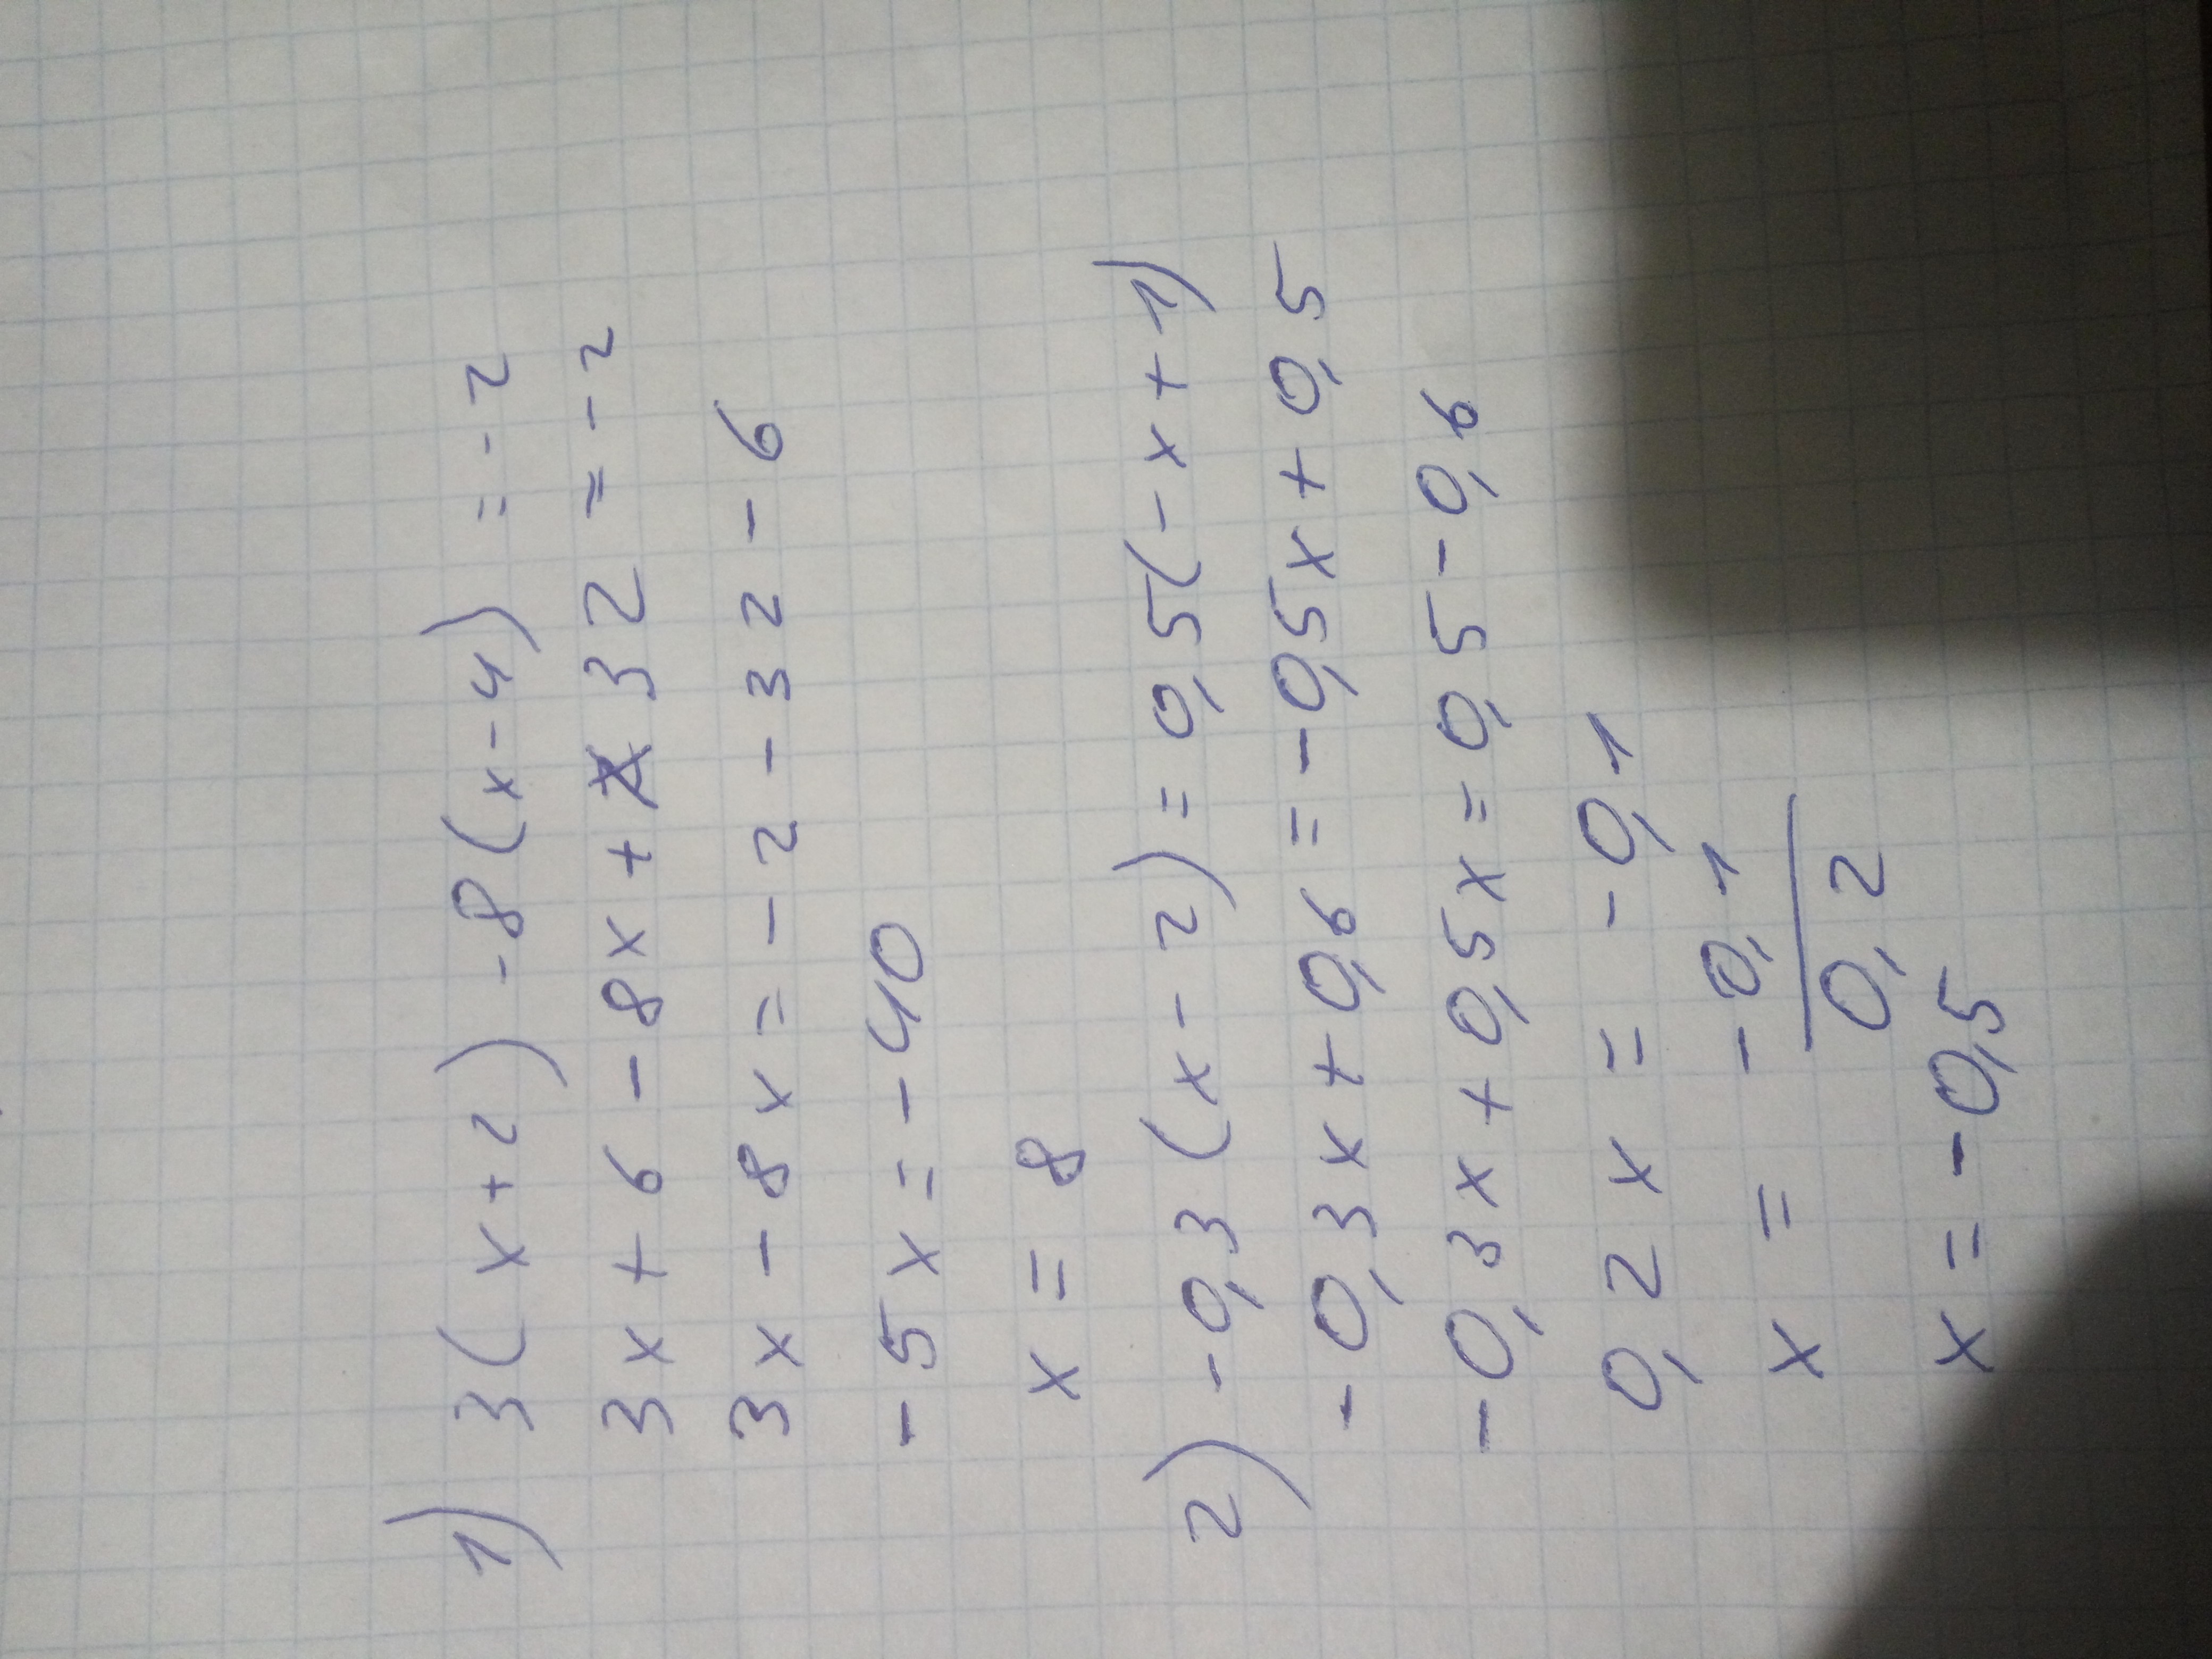 1) 3(x+2) -8(x-4) = -2
3x+6-8x+32=-2
3x-8x=-2-32-6
-5x=-40
x=8
2) -0,3(x-2)=0,5(-x+1)
-0,3x+0,6=-0,5x+0,5
-0,3x+0,5x=0,5-0,6
0,2x=-0,1
x=-0,1/0,2
x=-0,5